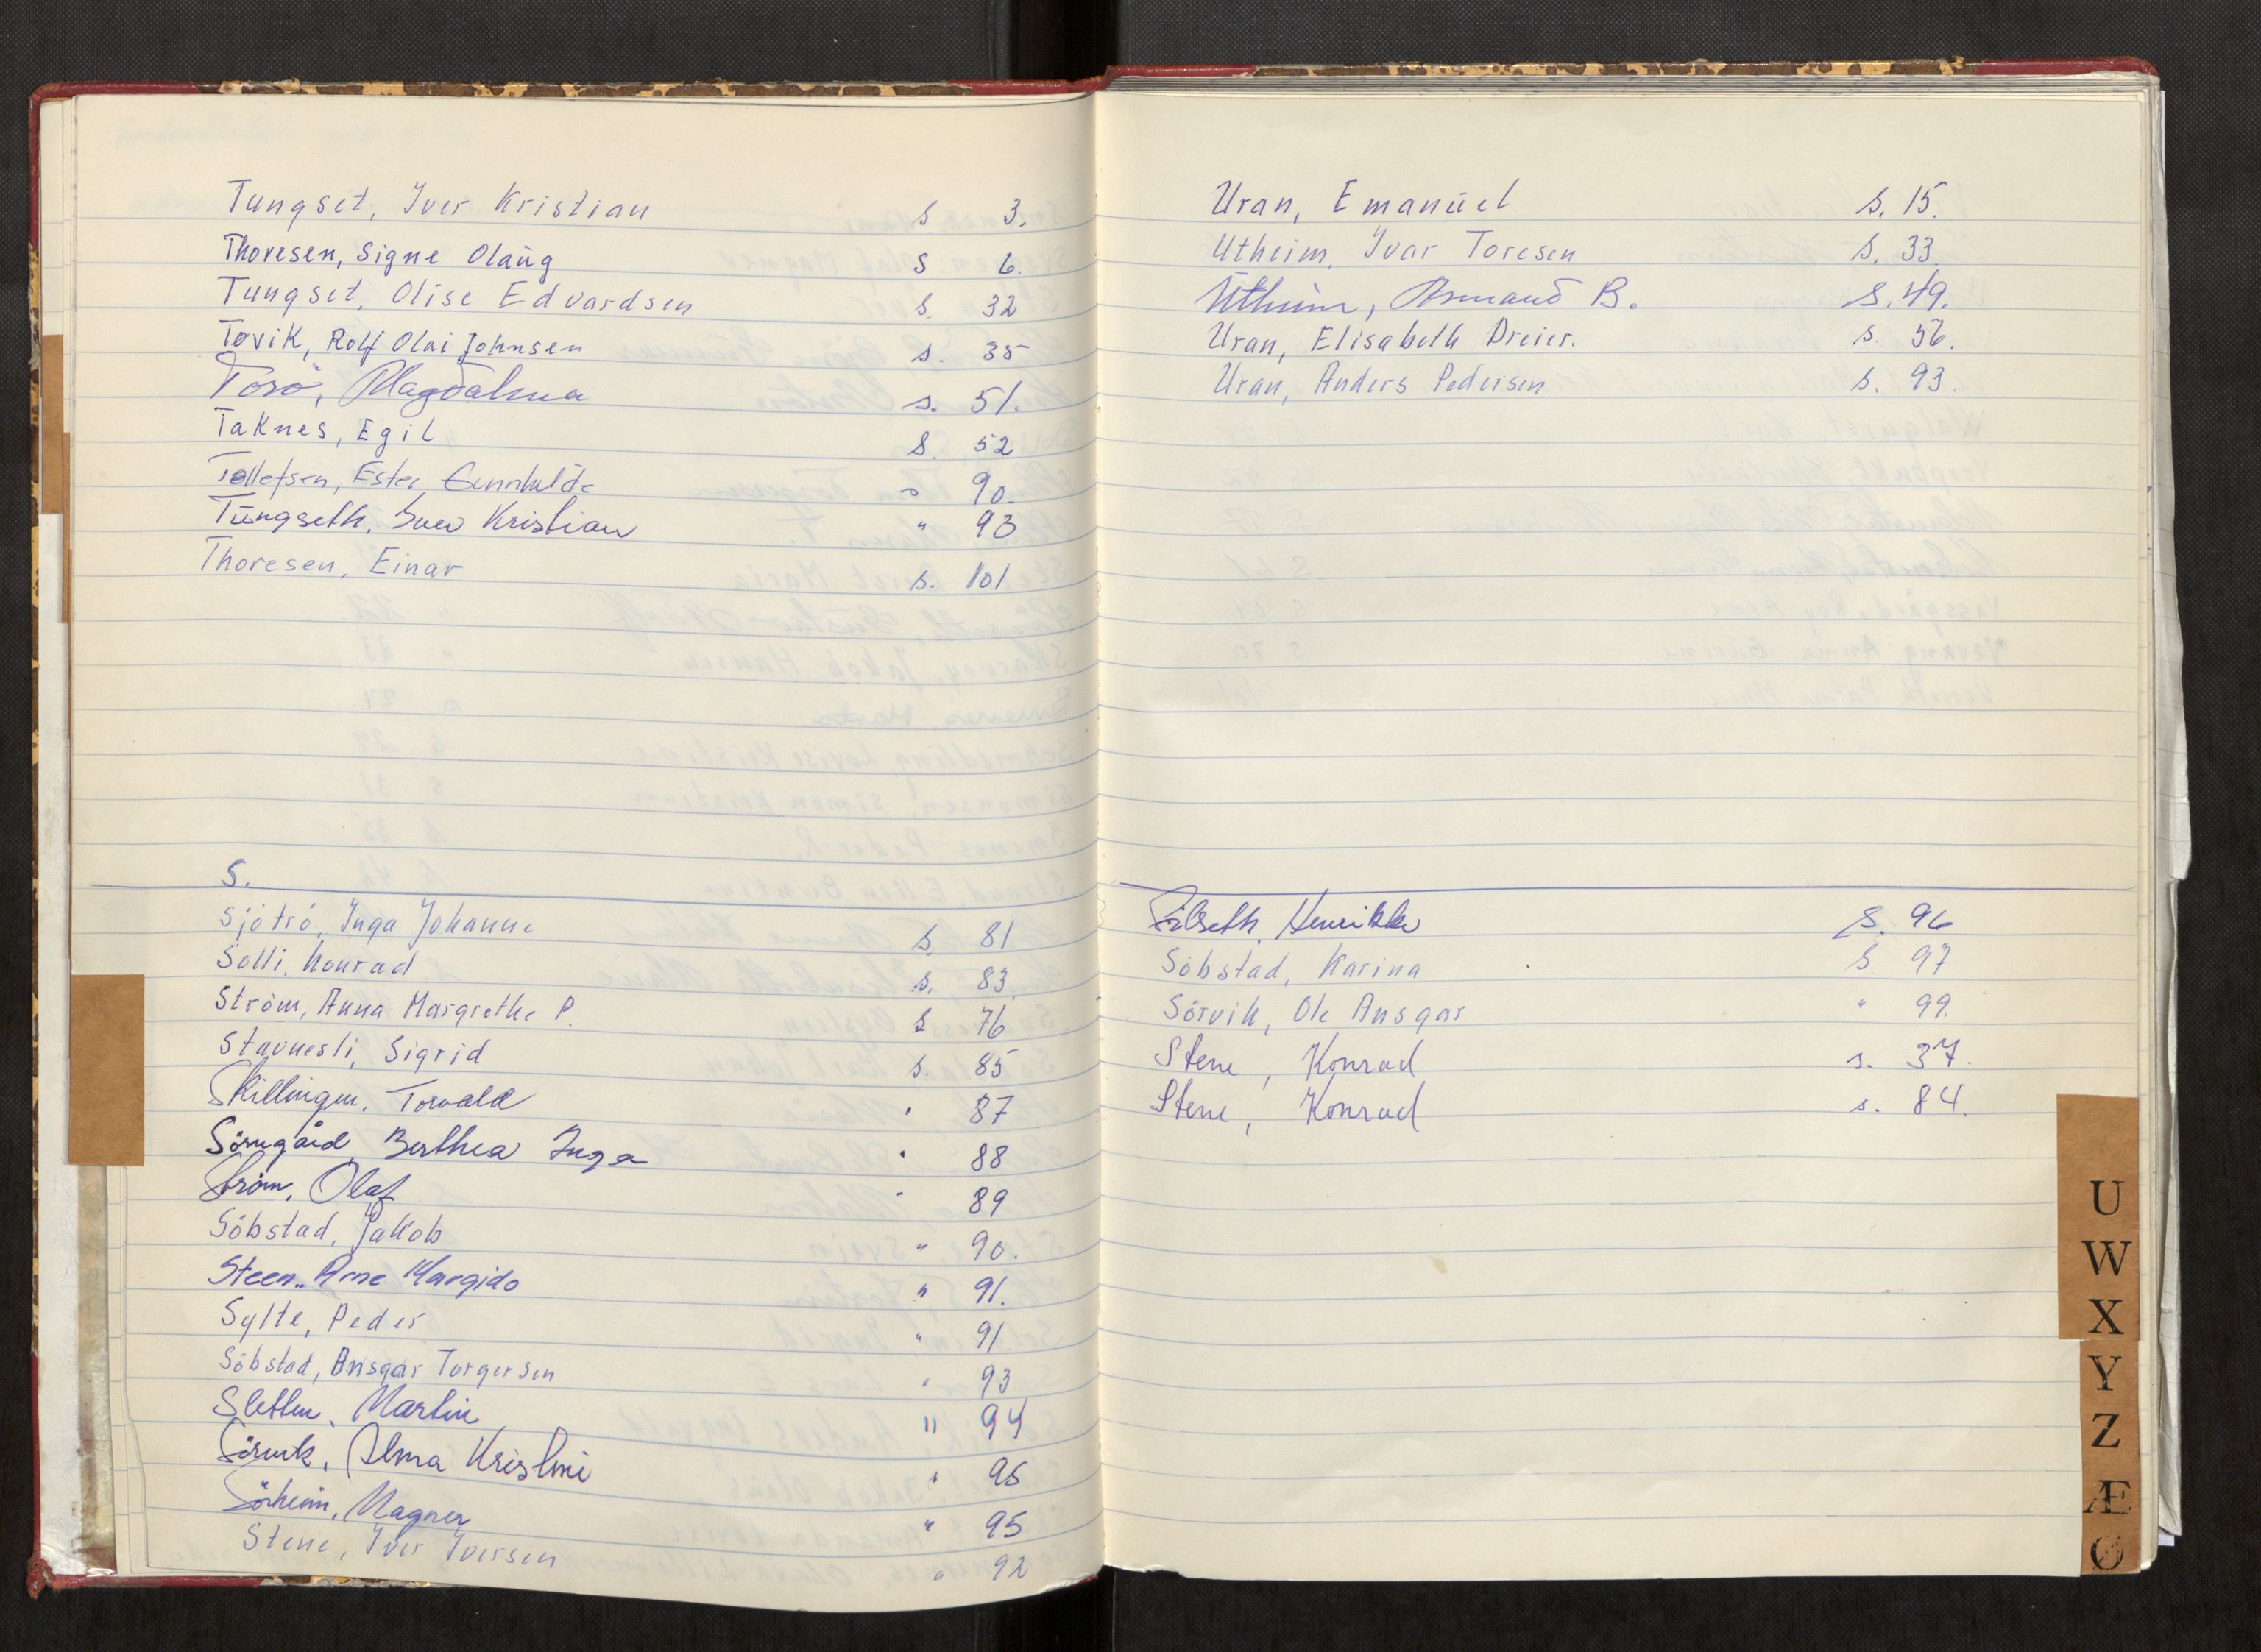 Tungset, Iver Kristian s 3.
Thoresen, Signe Olaug s 6.
Tungset, Olise Edvardsen s. 32
Tøvik, Rolf Olai Johnsen s. 35
Torö, Magdalena s. 51.
Taknes, Egil s. 52
Tollefsen, Ester Gunnhilde " 90.
Tungseth, Iver Kristian " 93
Thoresen, Einar s. 101
S.
Sjötrö, Inga Johanne s. 81
Solli, Konrad s. 83.
Ström, Anna Margrethe P. s 76
Stavnesli, Sigrid s. 85
Skillingen, Torvald " 87
Sörngård, Berthea Inga " 88
Ström, Olaf " 89
Söbstad, Jakob " 90.
Steen, Arne Margido " 91.
Sylte, Peder " 91
Söbstad, Ansgar Torgersen " 93
Sletten, Martin " 94
Sörvik, Alma Kristine " 95
Sörheim, Magner " 95
Stene, Iver Iversen " 92
Uran, Emanuel s. 15.
Utheim, Ivar Toresen s. 33.
Utheim, Armand B. s. 49.
Uran, Elisabeth Dreier. s. 56.
Uran, Anders Pedersen s. 93.
Henrikke s. 96
Söbstad, Karina s 97
Sörvik, Ole Ansgar " 99.
Stene, Konrad s. 37.
Stene, Konrad s. 84.
U
W
X
Y
Z
Æ
Ø